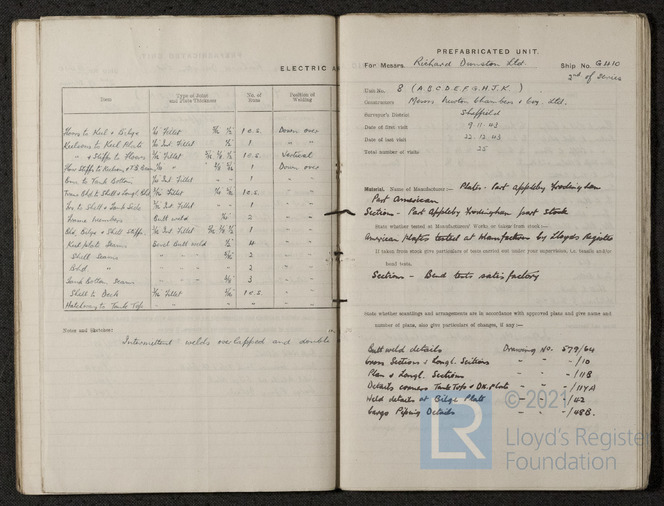 ELECTRIC A
Item
Type of Joint and Plate Thickness
No. of Runs
Position of Welding
Floors to Keel & Bilge Fillet 1 c.s. Down over
Keelsons to Keel Plate Int. Fillet 1 " "
" & Stiffs to Floors Fillet 1 c.s. Vertical
Floor Stiffs to Keelson & T.B. " 1 Down over
to Tank Bottom Int. Fillet - - 1 " "
Trans Bhd to Shell & Longl. Bhd Fillet 1 c.s. " "
to Shell & Tank Side Int. Fillet - - 1 " "
Frame Members Butt weld 2 " "
Bhd, Bilge & Shell Stiffs. Int. Fillet 1 " "
Keel plate Seams Bench Butt Weld 4 " "
Shell Seams " 2 " "
Bhd " " 2 " "
Tank Bottom Seams - - 3 " "
Shell to Deck Fillet 1 c.s. " "
Hatchway to Tank Top
Notes and Sketches:
Intermittent welds overlapped and double
PREFABRICATED UNIT.
For Messrs. Richard Dunston Ltd. Ship No. G410
2nd of Series
Unit No. 8 (A B C D E F G H J K)
Constructors Messrs Newton Chambers & Coy. Ltd.
Surveyor's District Sheffield
Date of first visit 9.11.43
Date of last visit 22.12.43
Total number of visits 25
Material. Name of Manufacturer:— Plates - Part Appleby Frodingham
Part American
Section - Part Appleby Frodingham part stock
State whether tested at Manufacturers' Works or taken from stock:—
American plates tested at Manufacturers by Lloyds Register
If taken from stock give particulars of tests carried out under your supervision, i.e. tensile and/or
bend tests.
Sections - Bend tests satisfactory
State whether scantlings and arrangements are in accordance with approved plans and give name and
number of plans, also give particulars of changes, if any:—
Butt weld details Drawing No. 579/64
Cross Sections & Longl. Sections " " - /10
Plan & Longl. Sections " " - /11B
Details corners Tank Tops & Dk. Plate - " - /114A
Weld details at Bilge Plate - " - /42
Cargo Piping Details " " - /48B.
© 2021
LR
Lloyd's Register
Foundation